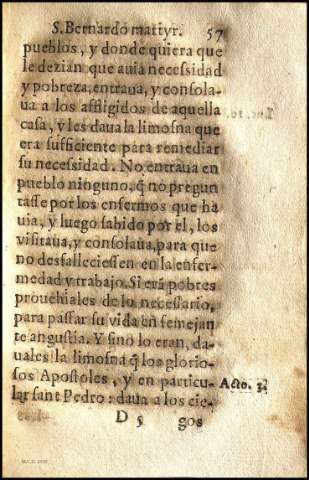 S. Bernardo martyr. 57
pueblos, y donde quiera que
le dezian que auia necessidad
y pobreza, entraua, y consola-
ua a los affligidos de aquella
casa, y les daua la limosna que
era sufficiente para remediar
su necessidad. No entraua en
pueblo ninguno, q̃ no pregun
tasse por los enfermos que ha
uia, y luego sabido por el, los
visitaua, y consolaua, para que
no desfalleciessen en la enfer-
medad y trabajo. Si erã pobres
prouehiales de lo necessario,
para passar su vida en semejan
te angustia. Y sino lo eran, da-
uales la limosna q̃ los glorio-
sos Apostoles, y en particu-
lar sant Pedro: daua a los cie-
Acto. 3.
D 5 gos